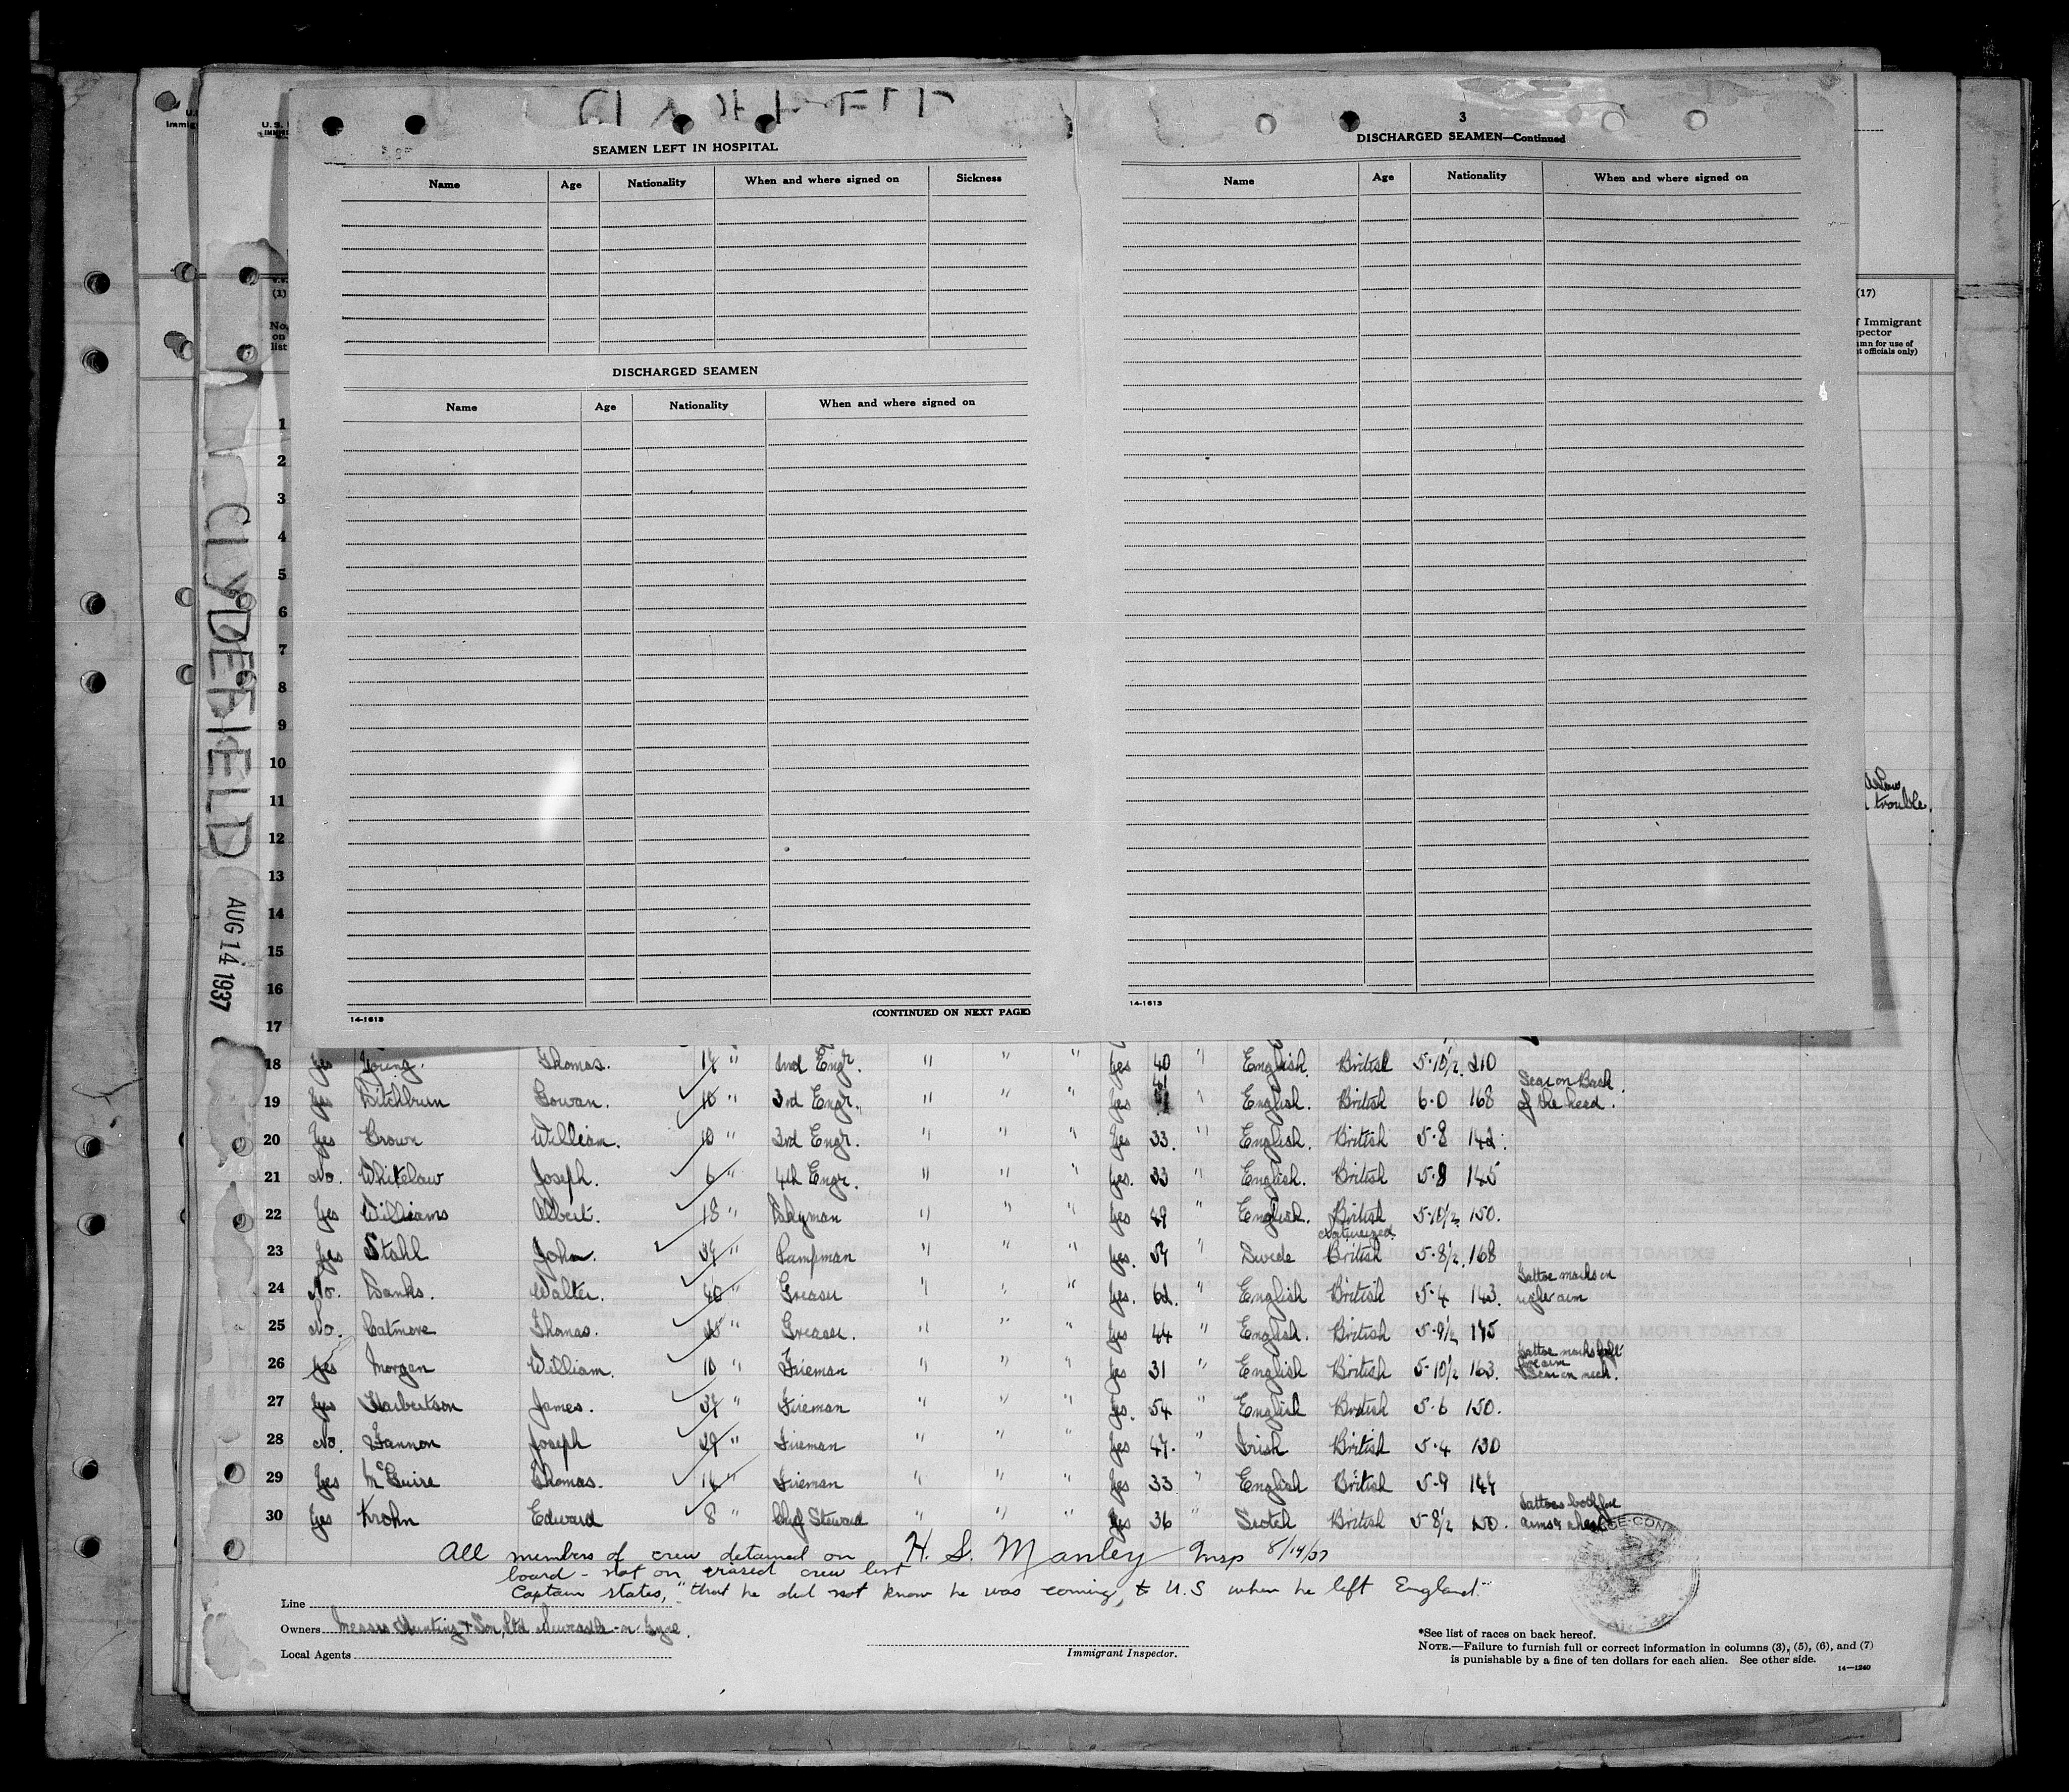 CLYDEFIELD
AUG 14 1937
SEAMEN LEFT IN HOSPITAL
Name Age Nationality When and where signed on Sickness
DISCHARGED SEAMEN
Name Age Nationality When and where signed on
14-1613 (CONTINUED ON NEXT PAGE)
3
DISCHARGED SEAMEN—Continued
Name Age Nationality When and where signed on
14-1613
U.S.
(1)
No.
on
list
(17)
f Immigrant
pector
umn for use of
t officials only)
trouble.
1
2
3
4
5
6
7
8
9
10
11
12
13
14
15
16
17
18 Yes Young. Thomas. 14 " 2nd Engr. " " " Yes 40 " English. British 5-10½. 210
19 Yes Pitchbrun Gowan. 10 " 3rd Engr. " " " Yes 41 " English. British 6-0 168 Scar on Back of the head.
20 Yes Brown William. 10 " 3rd Engr. " " " Yes 33. " English. British 5-8 142.
21 No. Whitelaw Joseph. 6 " 4th Engr. " " " Yes. 33 " English. British 5-8 145
22 Yes Williams Albert. 18 " " " " Yes 49 " English. British 5-10½. 150.
23 Yes Stahl John. 34 " Pumpman " " " Yes. 54 " Swede Naturalized British 5-8½. 168
24 No. Banks. Walter. 40 " Greaser " " " Yes. 62. " English British 5-4 143. Tattoe marks on right arm
25 No. Catmore Thomas. " Greaser. " " " Yes 44 " English. British 5-9½ 175
26 Yes Morgan William. 10 " Fireman " " " Yes 31 " English British 5-10½ 163. Tattoe marks left fore arm Scar on neck.
27 Yes Harbertson James. 34 " Fireman " " " Yes. 54 " English British 5-6 150.
28 No. Fannon Joseph 29 " Fireman " " " Yes 47. " Irish British 5-4 130
29 Yes McGuire Thomas. 14 " Fireman " " " Yes 33 " English British 5-9 144
30 Yes Krohn Edward 8 " Chief Steward " " " Yes 36 " Scotch British 5-8½ 150. Tattoes both fore arms & chest
All members of crew detained on H. S. Manley Insp 8/14/37
board - not on visaed crew list
Captain states, "that he did not know he was coming to U.S when he left England."
Line
Owners Messrs Hunting & Son, Ltd Newcastle-on-Tyne.
Local Agents
Immigrant Inspector.
*See list of races on back hereof.
NOTE.—Failure to furnish full or correct information in columns (3), (5), (6), and (7)
is punishable by a fine of ten dollars for each alien. See other side.
14-1240